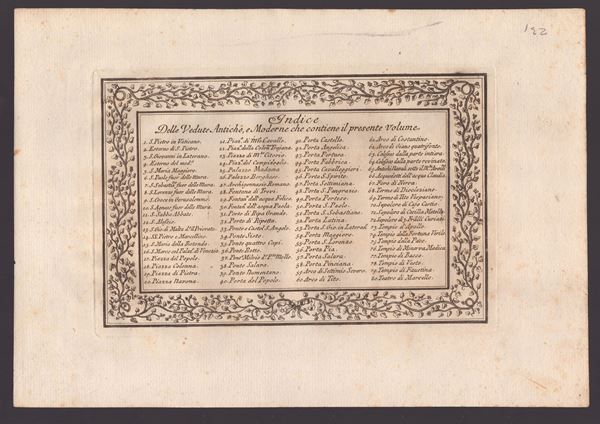 132
Indice
Delle Vedute Antiche, e Moderne che contiene il presente Volume.
1. S. Pietro in Vaticano.
2. Esterno di S. Pietro.
3. S. Giovanni in Laterano.
4. Esterno del med.º
5. S. Maria Maggiore.
6. S. Paolo fuor delle Mura.
7. S. Sebastiã. fuor delle Mura.
8. S. Lorenzo fuor delle Mura.
9. S. Croce in Gerusalemme.
10. S. Agnese fuor delle Mura.
11. S. Sabba Abbate.
12. S. Alessio.
13. S. Gio di Malta
14. SS. Pietro e Marcellino.
15. S. Maria della Rotonda.
16. S. Marco col Palaz. di Venezia
17. Piazza del Popolo.
18. Piazza Colonna.
19. Piazza di Pietra.
20. Piazza Navona.
21. Piaz.ª di M.te Cavallo.
22. Piaz.ª della Colõn.ª Trajana.
23. Piazza di M.te Citorio.
24. Piaz.ª del Campidoglio.
25. Palazzo Madama
26. Palazzo Borghese.
27. Archiginnasio Romano.
28. Fontana di Trevi.
29. Fontan.ª dell'acqua Felice.
30. Fontan.ª dell'acqua Paola.
31. Porto di Ripa Grande.
32. Porto di Ripetta.
33. Ponte e Castel S. Angelo.
34. Ponte Sisto.
35. Ponte quattro Capi.
36. Ponte Rotto.
37. Ponte Milvio d.º P.te Mollo.
38. Ponte Salara.
39. Ponte Numentano
40. Porta del Popolo.
41. Porta Castello.
42. Porta Angelica.
43. Porta Pertusa.
44. Porta Fabbrica.
45. Porta Cavalleggieri.
46. Porta S. Spirito.
47. Porta Settimiana.
48. Porta S. Pangrazio.
49. Porta Portese.
50. Porta S. Paolo.
51. Porta S. Sebastiano.
52. Porta Latina.
53. Porta S. Gio in Laterað
54. Porta Maggiore.
55. Porta S. Lorenzo.
56. Porta Pia.
57. Porta Salara.
58. Porta Pinciana.
59. Arco di Settimio Severo.
60. Arco di Tito.
61. Arco di Costantino.
62. Arco di Giano quadrifonte.
63. Colosseo dalla parte intiera.
64. Colosseo dalla parte rovinata.
65. Antichi Navali sotto il M.te
66. Aquedotti dell'acqua Claudia.
67. Foro di Nerva.
68. Terme di Diocleziano.
69. Terme di Tito Vespasiano.
70. Sepolcro di Cajo Cestio.
71. Sepolcro di Cecilia Metella
72. Sepolcro di 3. Fr.lli Curiazi.
73. Tempio d'Apollo.
74. Tempio della Fortuna Virile
75. Tempio della Pace.
76. Tempio di Minerva Medica.
77. Tempio di Bacco.
78. Tempio di Vesta.
79. Tempio di Faustina.
80. Teatro di Marcello.